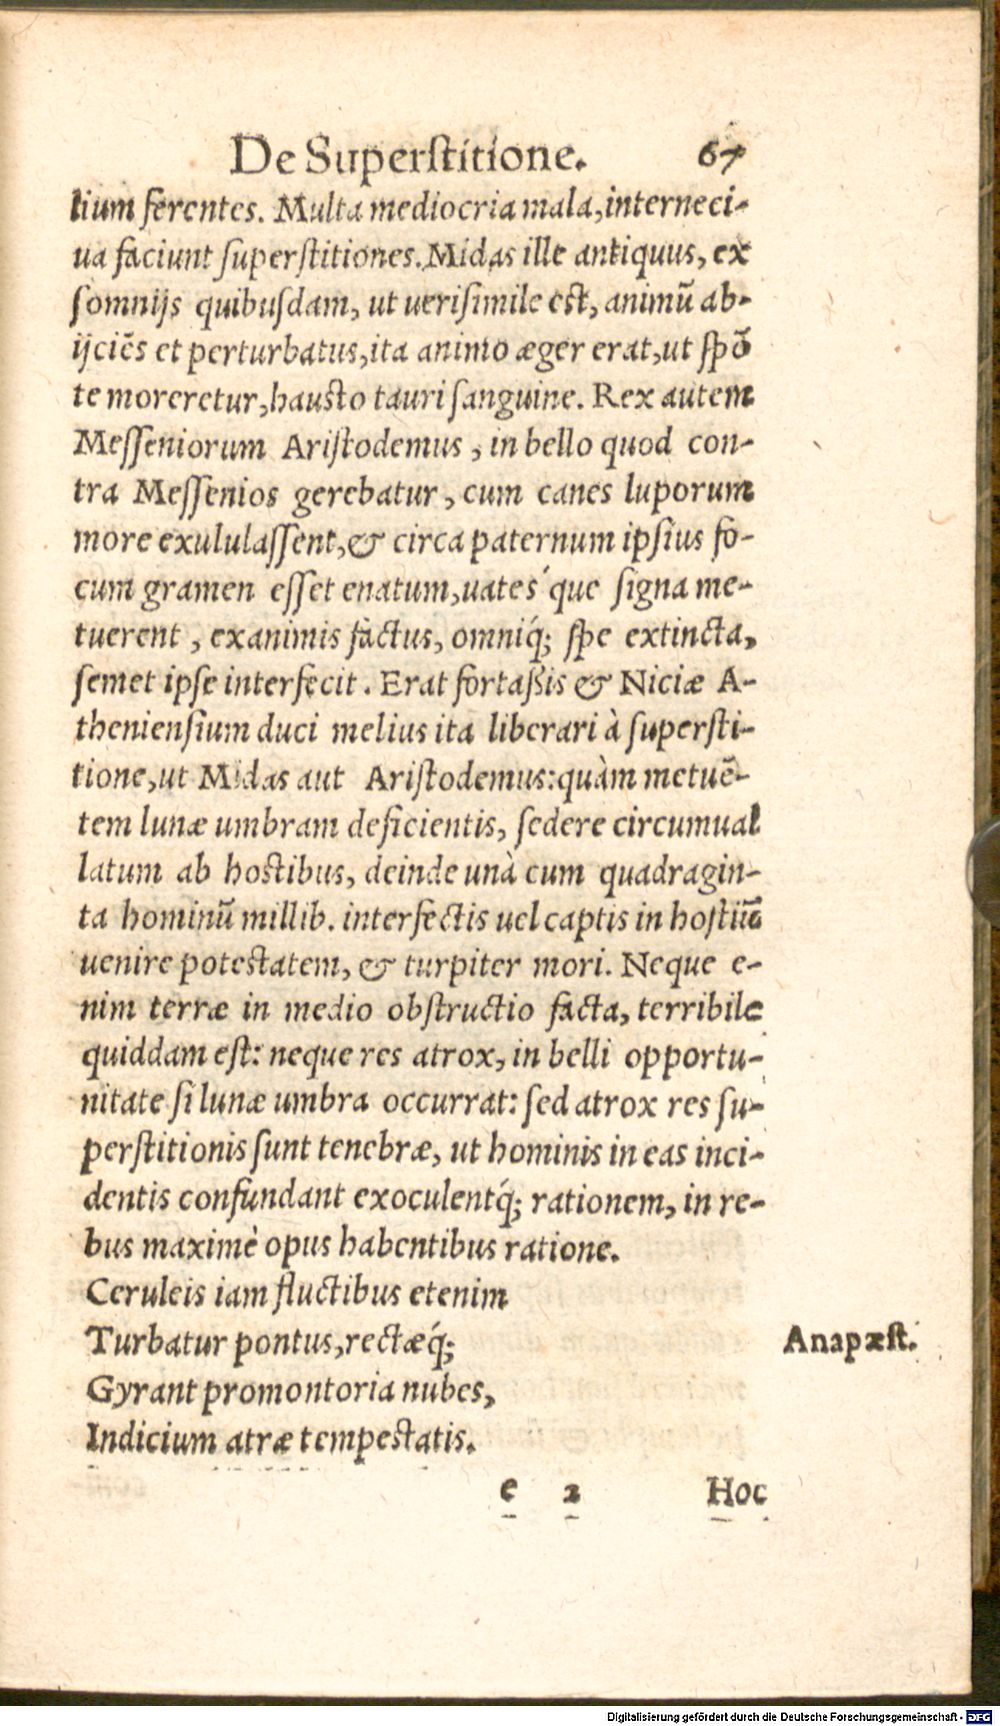 De Superstitione. 67
lium ferentes. Multa mediocria mala, interneci-
ua faciunt superstitiones. Midas ille antiquus, ex
somnijs quibusdam, ut uerisimile est, animū ab-
ijciēs et perturbatus, ita animo æger erat, ut spō
te moreretur, hausto tauri sanguine. Rex autem
Messeniorum Aristodemus, in bello quod con-
tra Messenios gerebatur, cum canes luporum
more exululassent, & circa paternum ipsius fo-
cum gramen esset enatum, uates´que signa me-
tuerent, exanimis factus, omniq́; spe extincta,
semet ipse interfecit. Erat fortaßis & Niciæ A-
theniensium duci melius ita liberari à supersti-
tione, ut Midas aut Aristodemus: quàm metuē-
tem lunæ umbram deficientis, sedere circumual
latum ab hostibus, deinde unà cum quadragin-
ta hominū millib. interfectis uel captis in hostiū
uenire potestatem, & turpiter mori. Neque e-
nim terræ in medio obstructio facta, terribile
quiddam est: neque res atrox, in belli opportu-
nitate si lunæ umbra occurrat: sed atrox res su-
perstitionis sunt tenebræ, ut hominis in eas inci-
dentis confundant exoculentq́; rationem, in re-
bus maximè opus habentibus ratione.
Ceruleis iam fluctibus etenim
Turbatur pontus, rectæq́; Anapæst.
Gyrant promontoria nubes,
Indicium atræ tempestatis.
e 2 Hoc
Digitalisierung gefördert durch die Deutsche Forschungsgemeinschaft - DFG